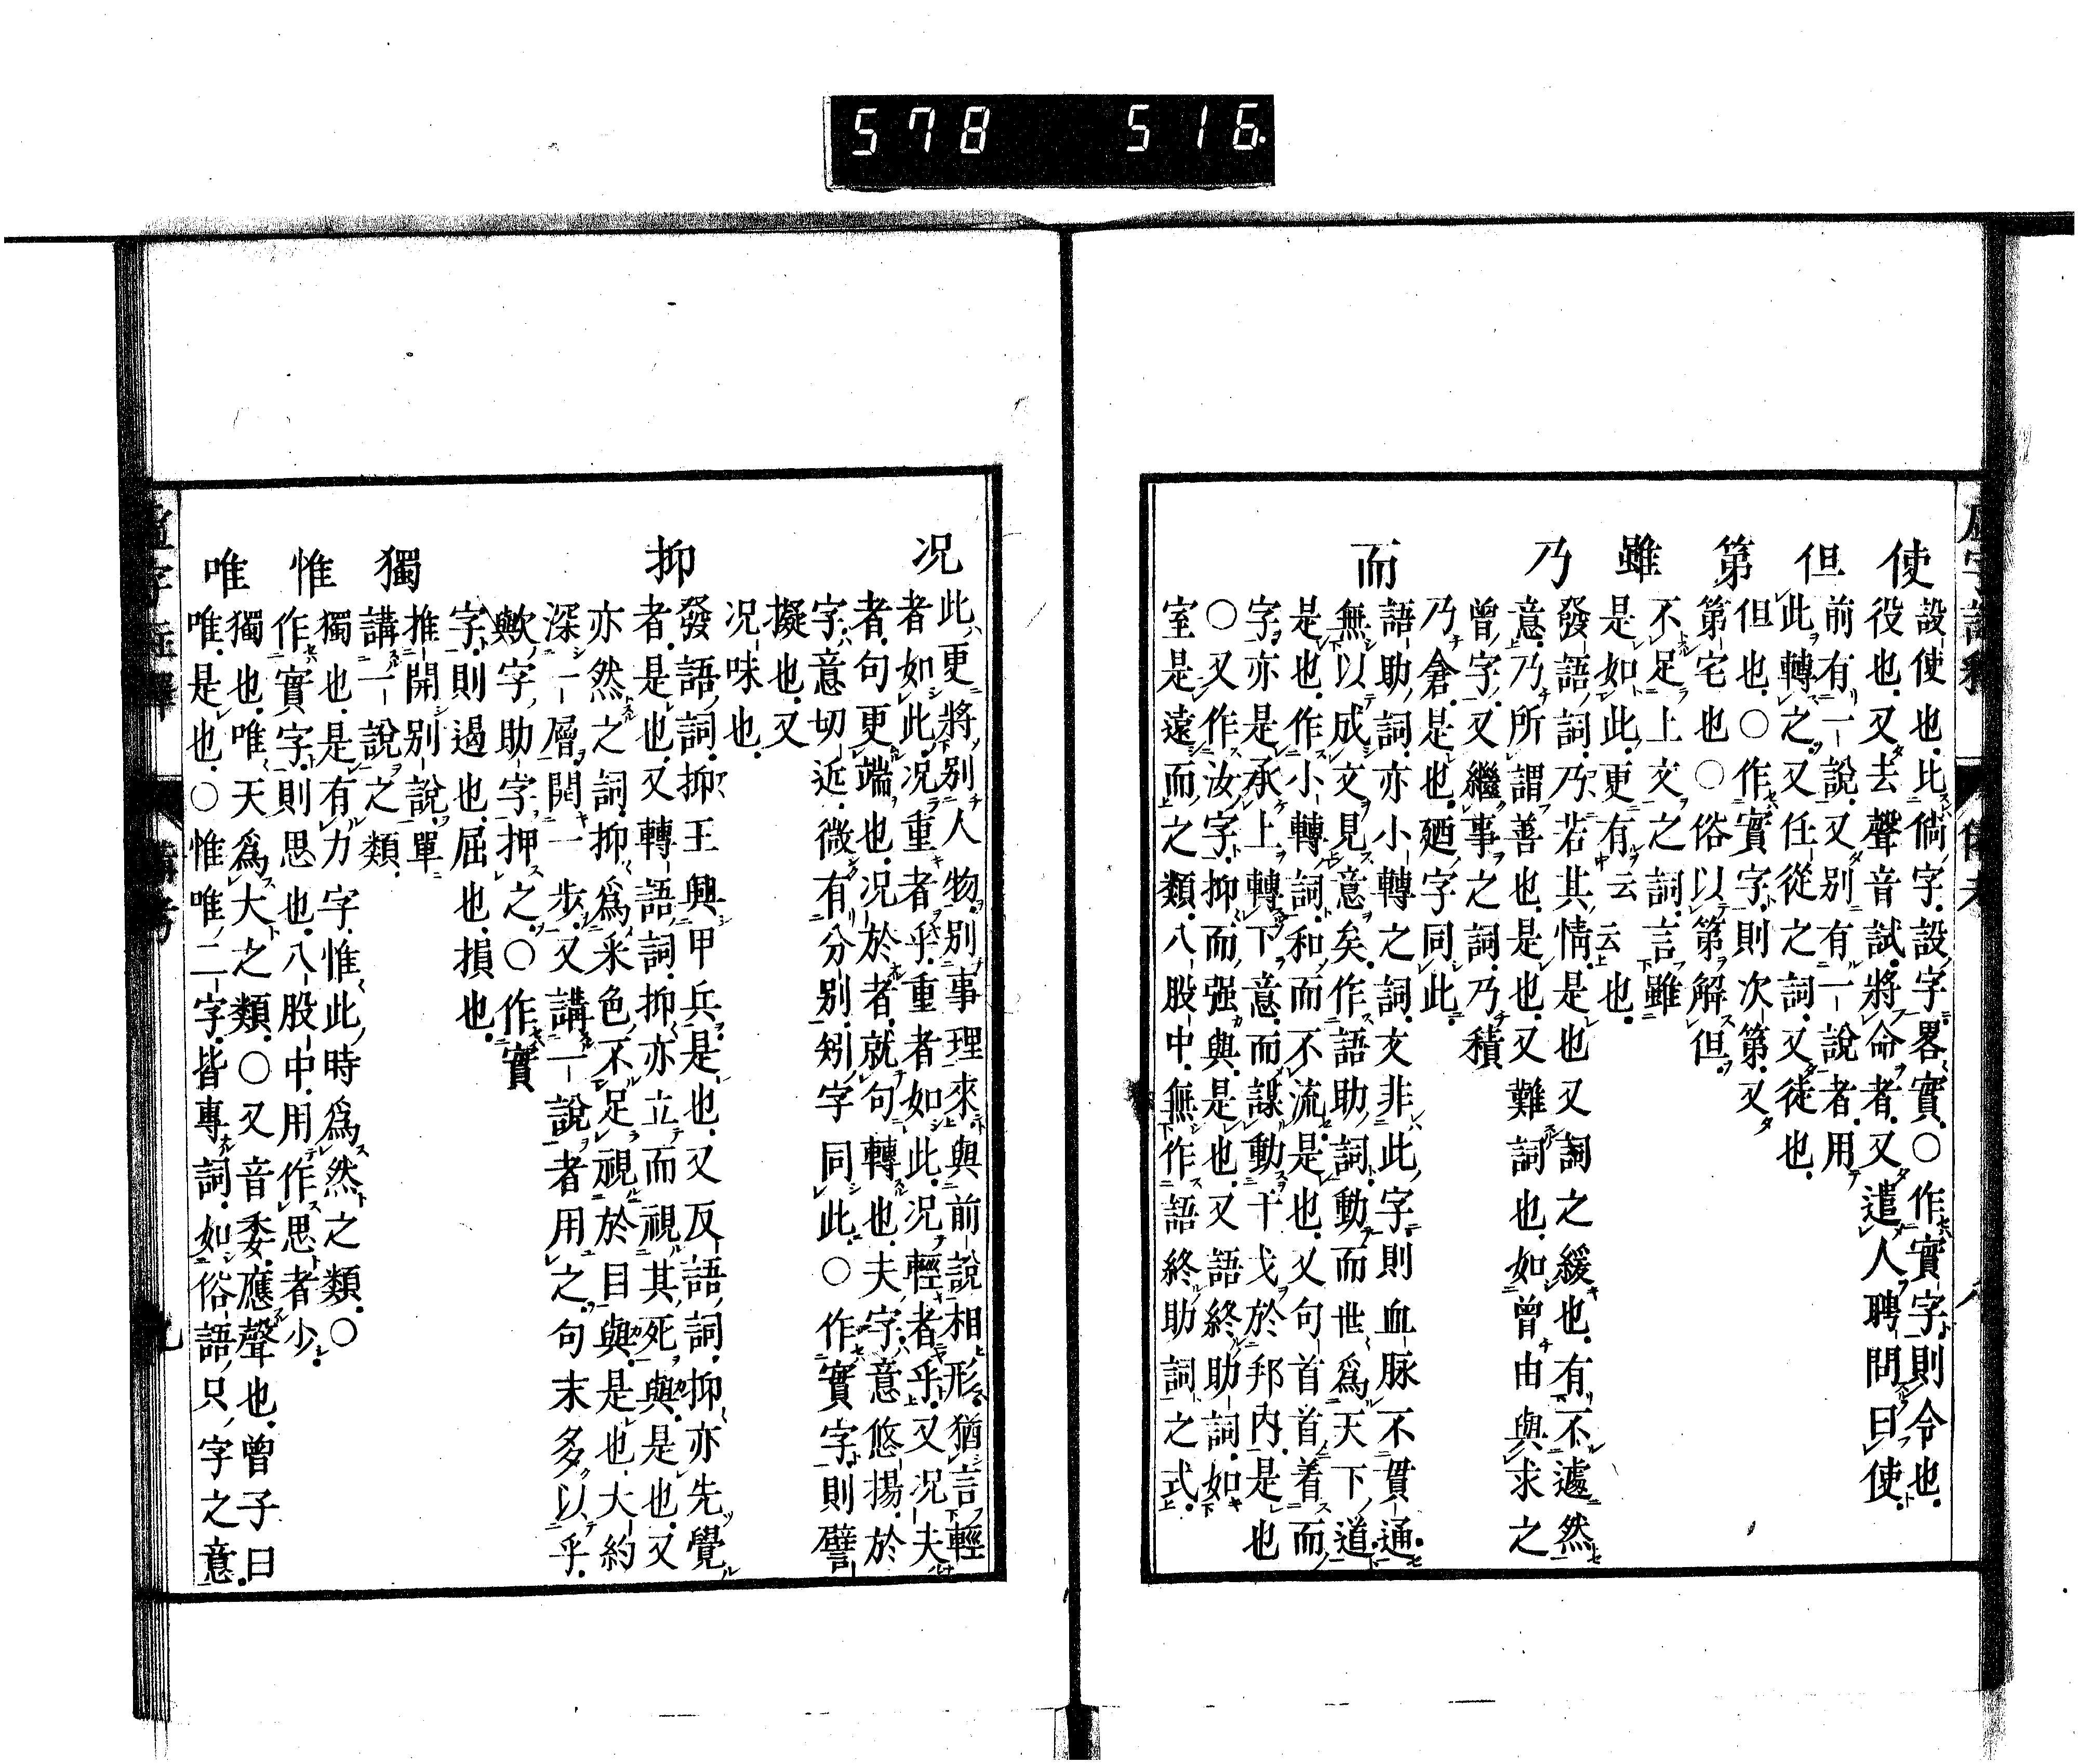 578 516.
使 設使也比倘字設字畧實○作實字則令也
役也又去聲音試將命者又遣人聘問曰使
前有一說又別有一說者用
但 此轉之又任從之詞又徒也
但也○作實字則次第又
第 第宅也○俗以第解但
不足上文之詞言雖
雖 是如此更有云云也
發語詞乃若其情是也又詞之緩也有不遽然
乃 意乃所謂善也是也又難詞也如曾由與求之
曾字又繼事之詞乃積
乃倉是也廼字同此
語助詞亦小轉之詞文非此字則血脉不貫通
而 無以成文見意矣作語助詞動而世為天下道
是也作小轉詞和而不流是也又句首首着而
字亦是承上轉下意而謀動干戈於邦内是也
○又作汝字抑而强與是也又語終助詞如
室是遠而之類八股中無作語終助詞之式
况 此更將別人物別事理來與前說相形猶言輕
者如此况重者乎重者如此况輕者乎又况夫
者句更端也况於者就句轉也夫字意悠揚於
字意切近微有分別矧字同此○作實字則譬
擬也又
况味也
抑 發語詞抑王興甲兵是也又反語詞抑亦先覺
者是也又轉語詞抑亦立而視其死與是也又
亦然之詞抑為采色不足視於目與是也大約
深一層開一步又講一說者用之句末多以乎
歟字助字押之○作實
字則遏也屈也損也
推開別說單
獨 講一說之類
獨也是有力字惟此時為然之類○
惟 作實字則思也八股中用作思者少
獨也唯天為大之類○又音委應聲也曾子曰
唯 唯是也○惟唯二字皆專詞如俗語只字之意